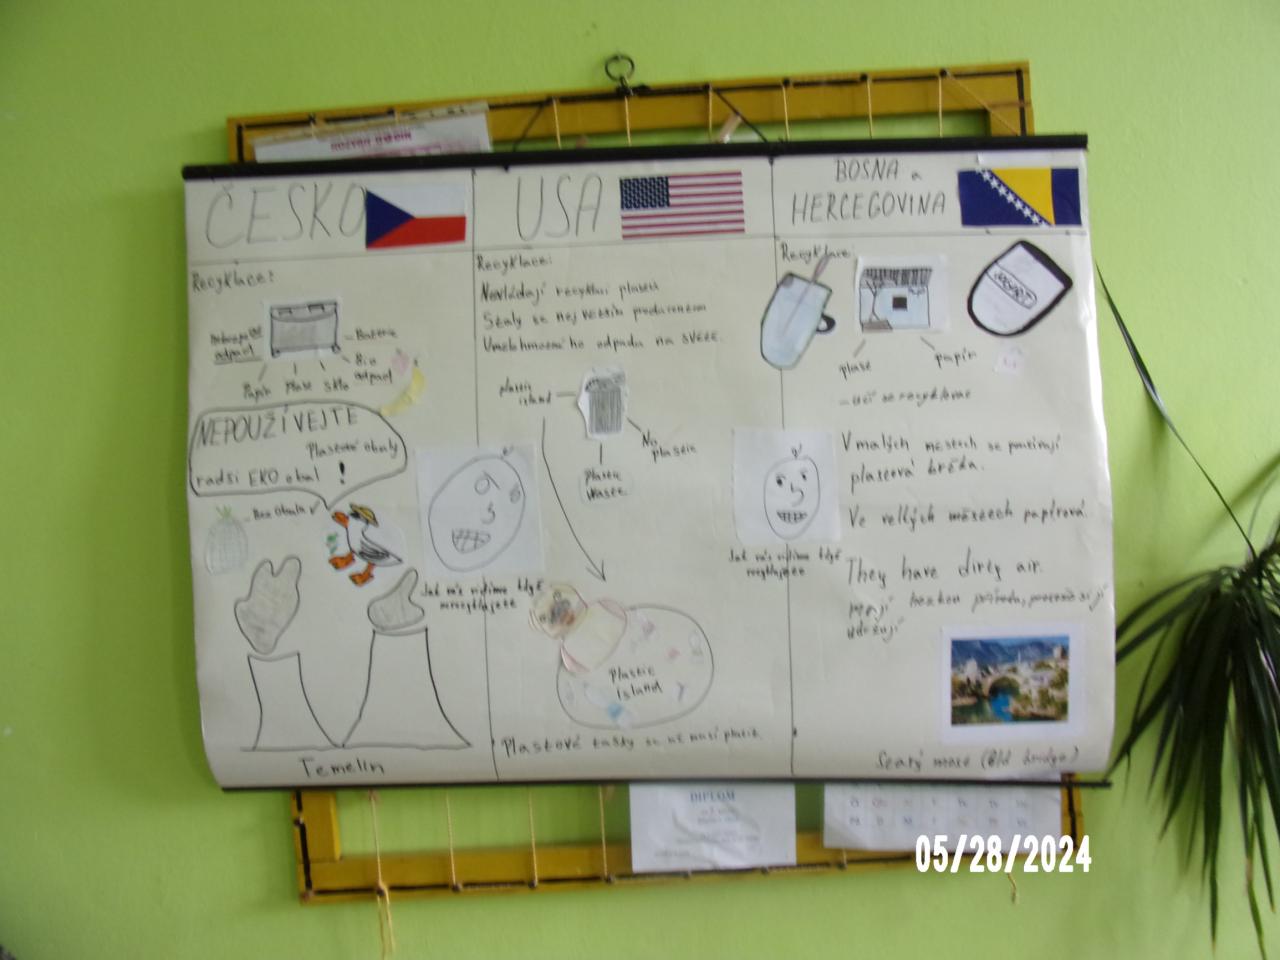 ČESKO
USA
BOSNA a
HERCEGOVINA
Recyklace:
Nebezpeč
odpad
Baterie
Bio
odpad
Papír Plast Sklo
NEPOUŽÍVEJTE
Plastové obaly
radši EKO obal !
Bez obalu
Jak nás vidíme když
nerecyklujete
Temelín
Recyklace:
Nezvládají recyklaci plastů
Staly se nej větším producentem
odpadu na světě.
plastic
island
No
plastic
Plastic
waste
Plastic
island
Plastové tašky se už musí platit.
Recyklace:
JOGURT
plast
papír
- učí se recyklovat
V malých městech se používají
plastová brčka.
Ve velkých městech papírová.
Jak nás vidíme když
recyklujete
They have dirty air.
Mají hezkou přírodu, protože si jí
udržují
Starý most (Old bridge)
DIPLOM
05/28/2024